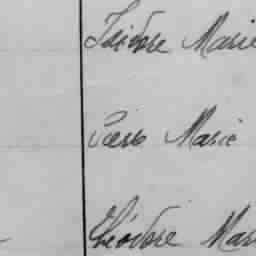 Isidore Marie
Marie
Théodore Mar